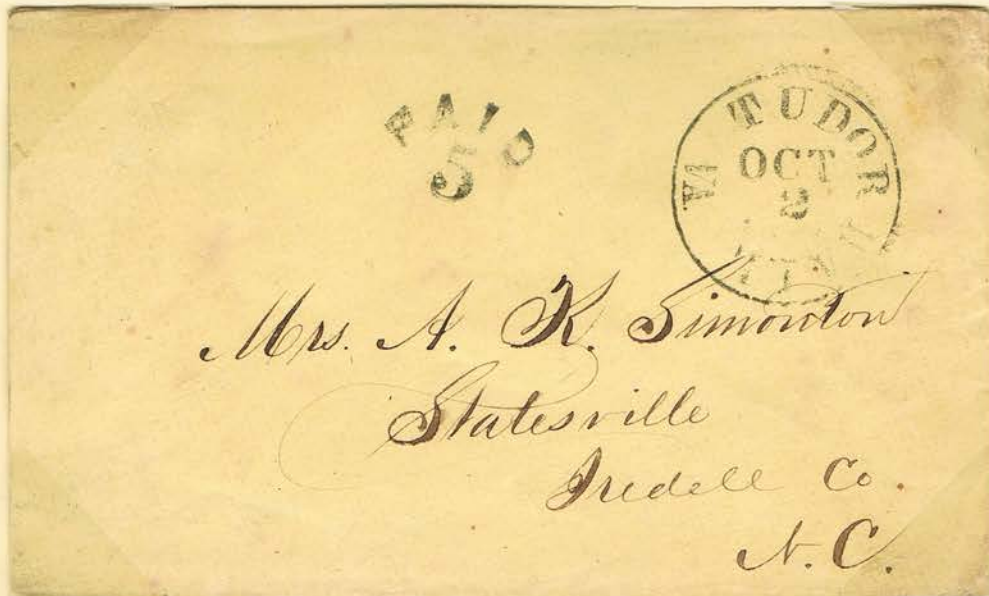 PAID
5
TUDOR HALL VA
OCT
2
Mrs. A. K. Simonton
Statesville
Iredell Co.
N. C.